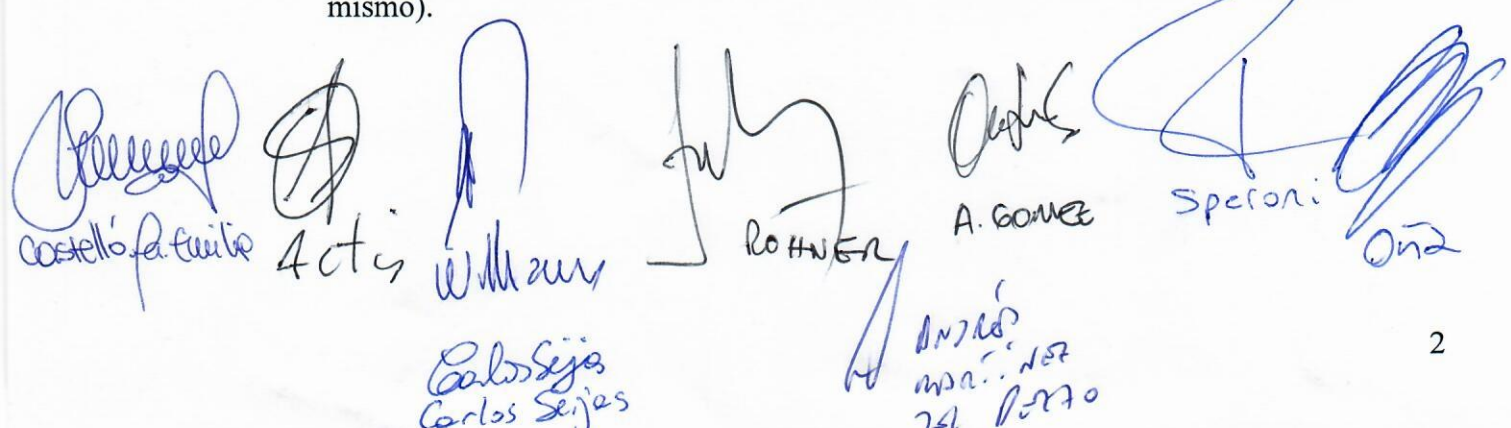 mismo).
Castelló, Fa. Emilio
Actis
Williams
ROHNER
A. GOMEZ
Speroni
Oña
Carlos Seijas
Carlos Seijas
ANDRÉS
MARTÍNEZ
DEL PEZZO
2